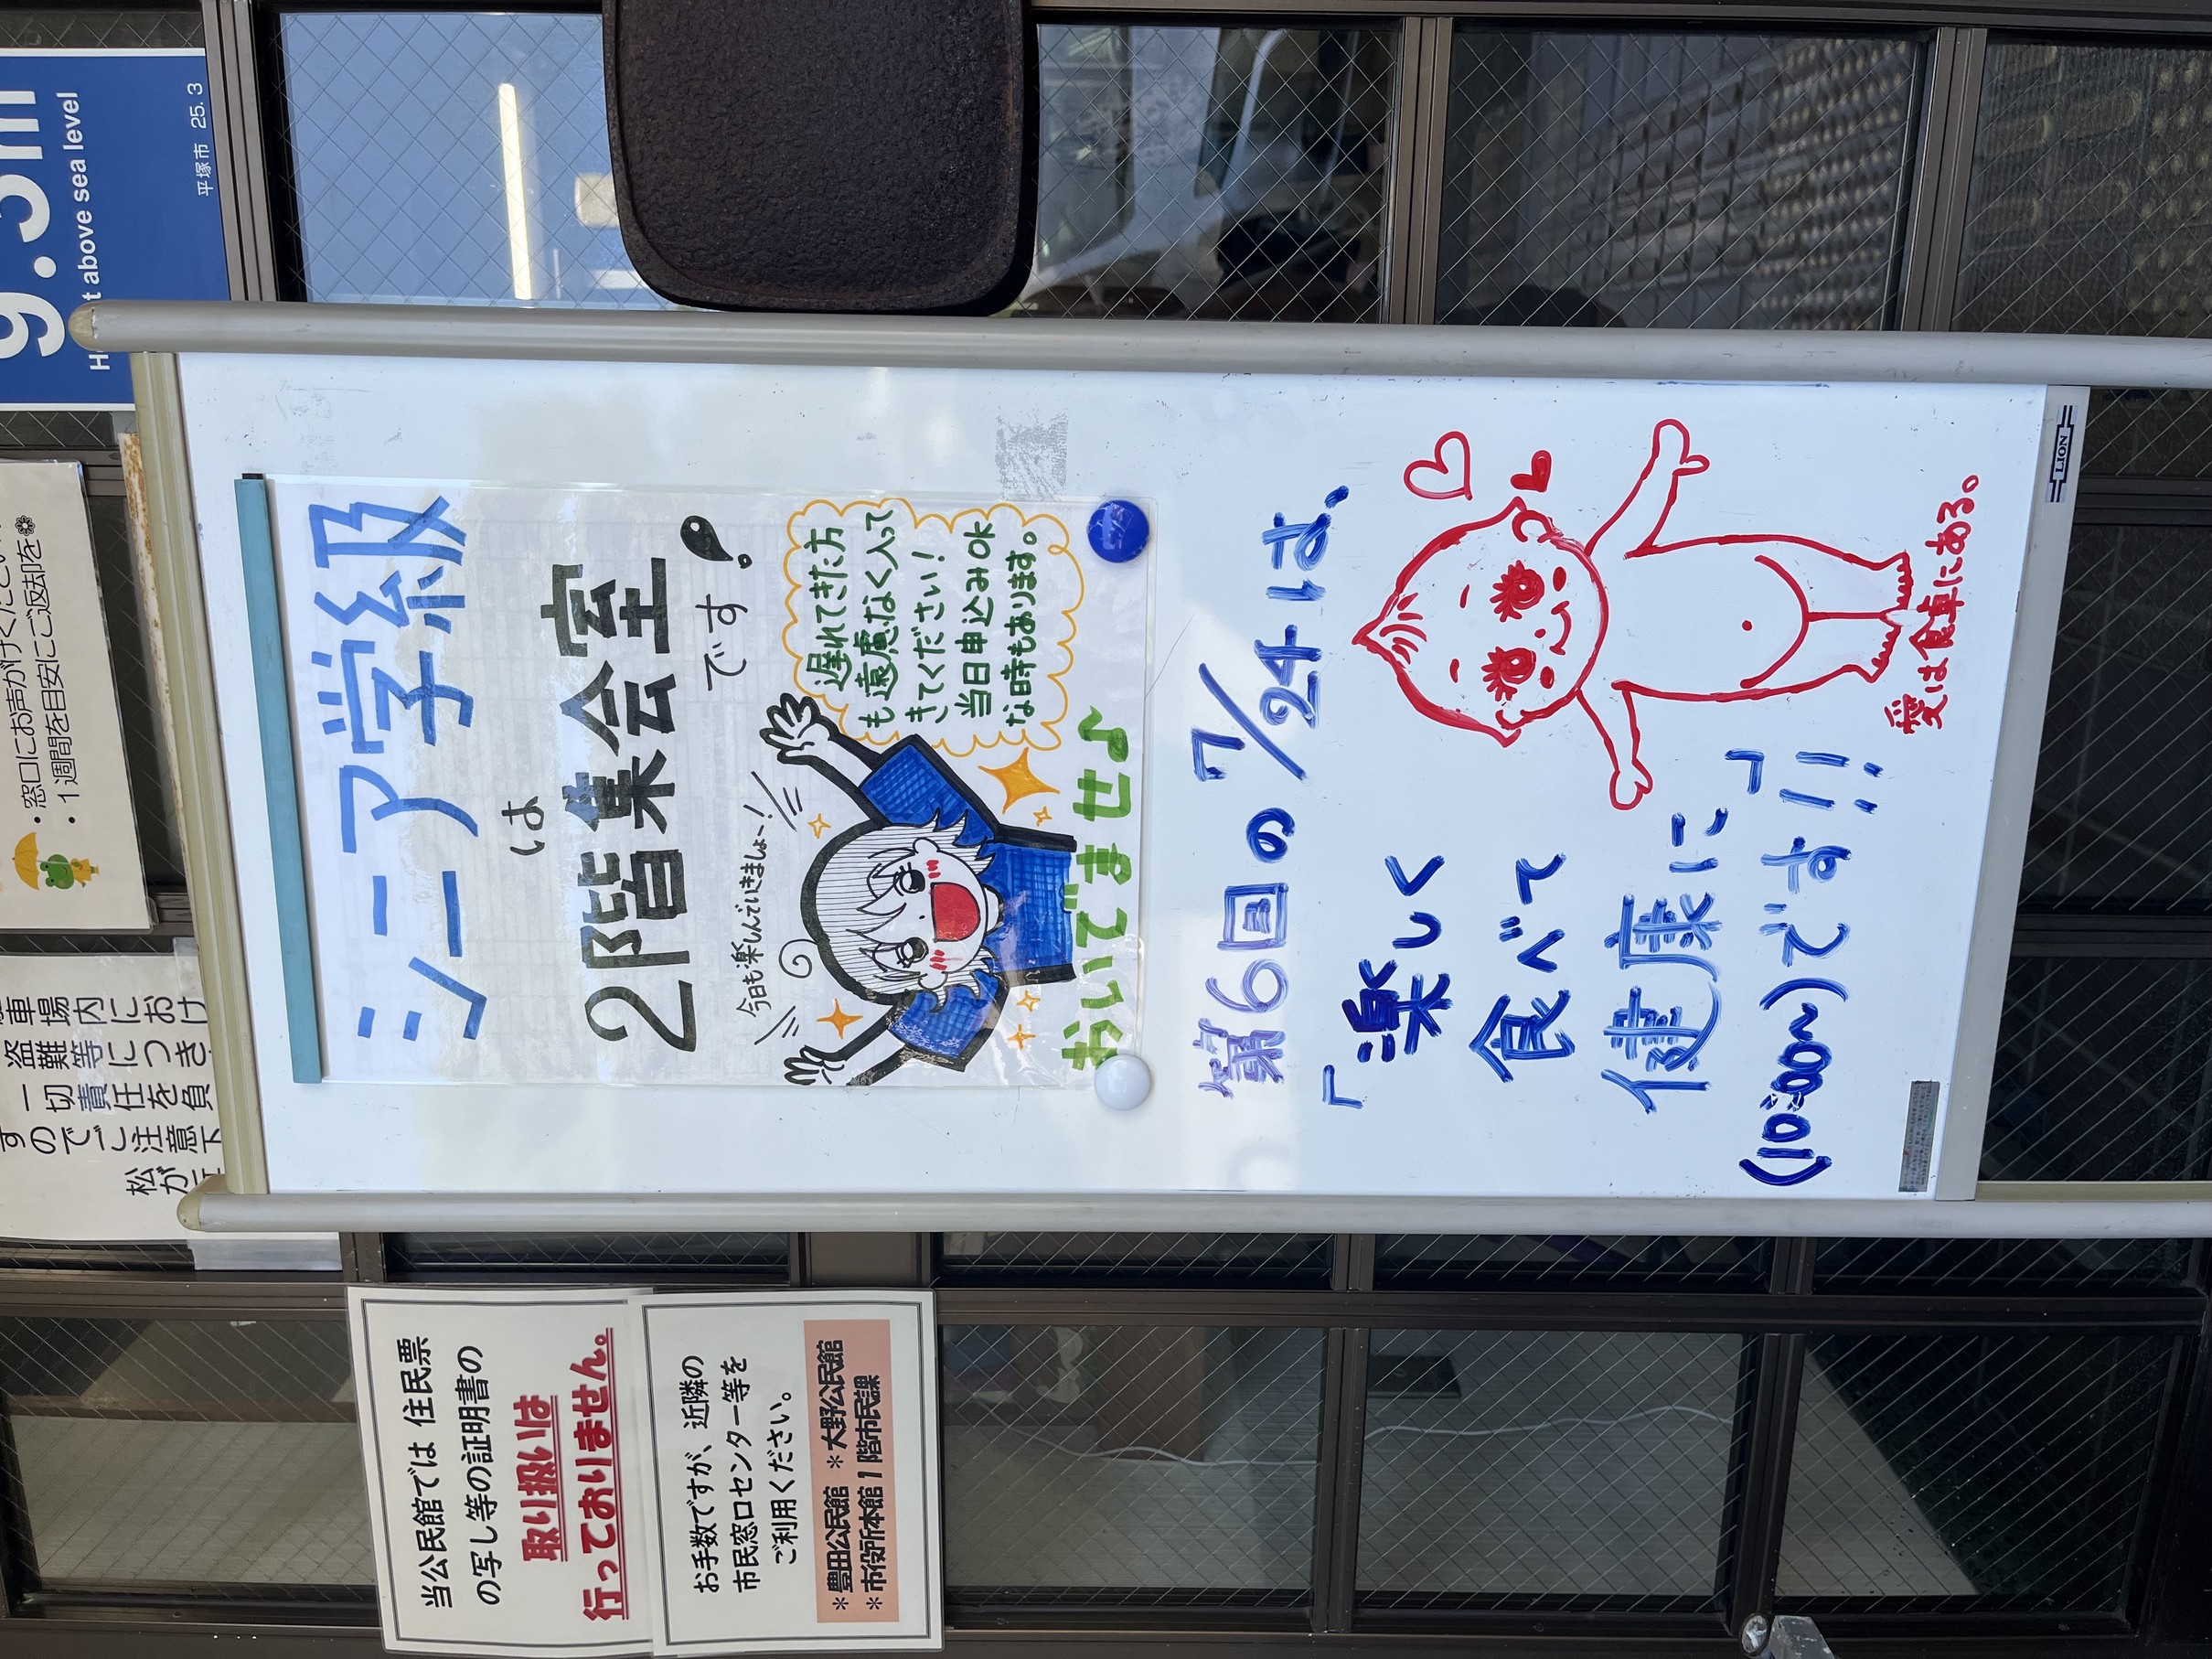 9.5m
above sea level
平塚市 25.3
・窓口にお声がけくださ
・1週間を目安にご返却を
車場内にお
盗難等につき
一切責任を負
のでご注意下
松が
シニア学級
は
2階集会室
です!
今日も楽しんでいきましょ〜!
遅れてきた方
も遠慮なく入って
きてください!
当日申込みOK
な日時もあります。
おいでませ♪
第6回の7/24は、
「楽しく
食べて
健康に」
(10:00〜)です!!
愛は食卓にある。
LION
当公民館では 住民票
の写し等の証明書の
取り扱いは
行っておりません。
お手数ですが、近隣の
市民窓口センター等を
ご利用ください。
*豊田公民館 *大野公民館
*市役所本館1階市民課